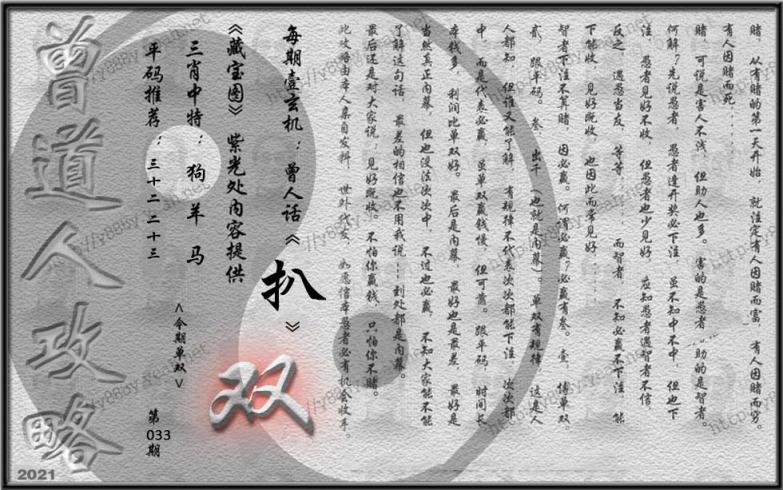 赌，从有赌的第一天开始，就注定有人因赌而富，有人因赌而穷。
有人因赌而死……
赌，可说是害人不浅，但助人也多。害的是愚者，助的是智者。
何解？先说愚者，愚者逢开奖必下注，虽不知中不中，但也下
注，愚者见好不收，但愚者也少见好，应知愚者遇智者不信，
反之，遇愚当友，等等，而智者，不知必赢不下注，能
下能收，见好既收，也因此而常见好……
智者下注不算赌，因必赢。何谓必赢？必赢有叁。壹，缚单双，
贰，跟平码。叁，出千（也就是内幕）。单双有规律，这是人
人都知，但谁又能了解，有规律不代表次次都能下注，次次都
中，而是代表必赢，虽单双赢钱慢，但可靠。跟平码，时间长
本钱多，利润比单双好。最后是内幕，最好也是最差，最好是
当然真正内幕，但也没法次次中，不过也必赢，不知大家能不能
了解这句话，最差的相信也不用我说……到处都是内幕。
最后还是对大家说：见好既收。不怕你赢钱，只怕你不赌。
此攻略由本人亲自发料，世外代发，如愿信奉愚者必有机会收丰。
每期壹玄机：曾人话《扒》
《藏宝图》紫光处内容提供
三肖中特：狗羊马
平码推荐：三十二 二十三
<今期单双>
双
第
033
期
曾道人攻略
2021